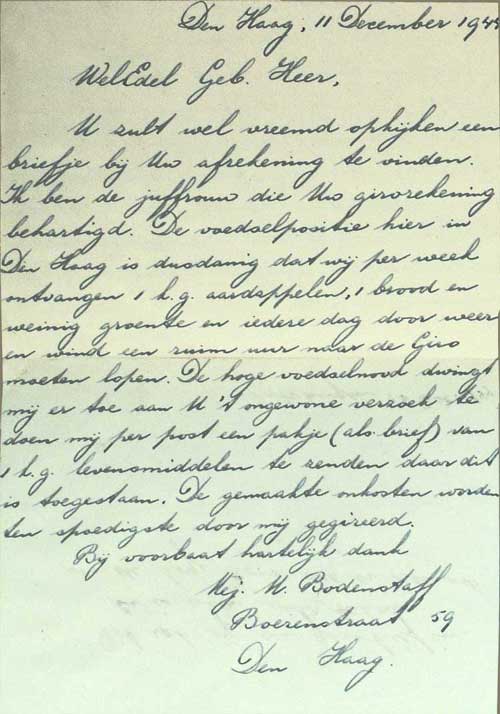 Den Haag, 11 December 1944
WelEdel Geb. Heer,
U zult wel vreemd opkijken een
briefje bij Uw afrekening te vinden.
Ik ben de juffrouw die Uw girorekening
behartigd. De voedselpositie hier in
Den Haag is dusdanig dat wij per week
ontvangen 1 k.g. aardappelen, 1 brood en
weinig groente en iedere dag door weer
en wind een ruim uur naar de Giro
moeten lopen. De hoge voedselnood dwingt
mij er toe aan U 't ongewone verzoek te
doen mij per post een pakje (als brief) van
1 k.g. levensmiddelen te zenden daar dit
is toegestaan. De gemaakte onkosten worden
ten spoedigste door mij gegireerd.
Bij voorbaat hartelijk dank
Mej. M. Bodenstaff
Boerenstraat 59
Den Haag.